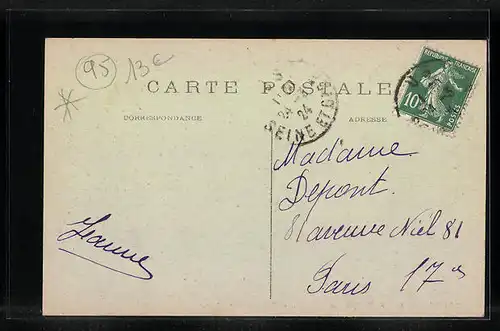 95 13€
CARTE POSTALE
CORRESPONDANCE
ADRESSE
24
24
SEINE ET OISE
RÉPUBLIQUE FRANÇAISE
10c
POSTES
Madame
Depont.
81 avenue Niel 81
Paris 17e
Jeanne